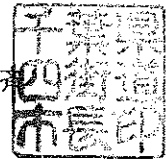 千葉県
四街道
市長印